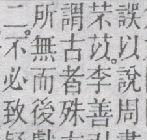 誤以說周
芣苡。李善
謂古者殊
所無而後
二不必致